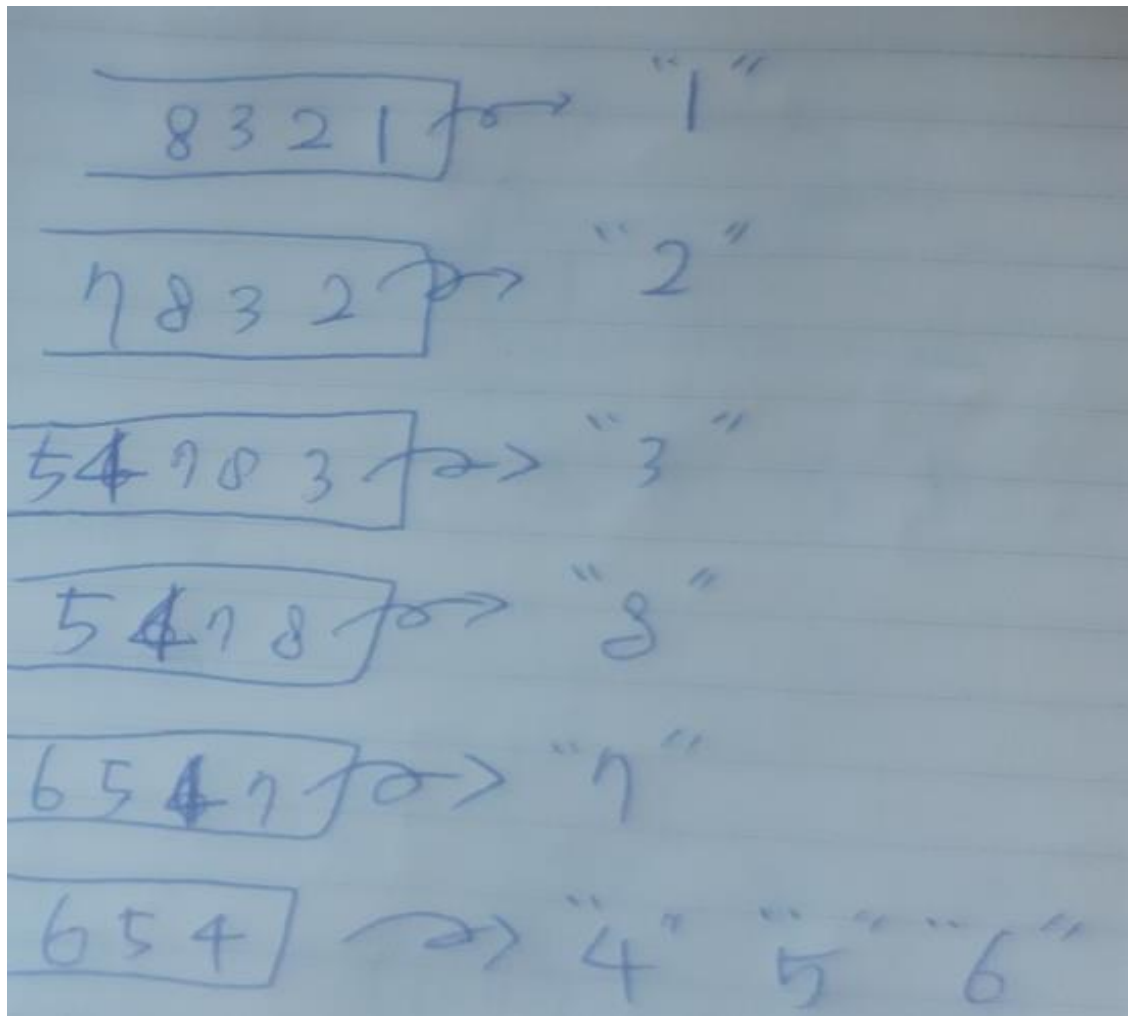 8 3 2 1 → "1"
7 8 3 2 → "2"
5 4 7 8 3 → "3"
5 4 7 8 → "8"
6 5 4 7 → "7"
6 5 4 → "4" "5" "6"